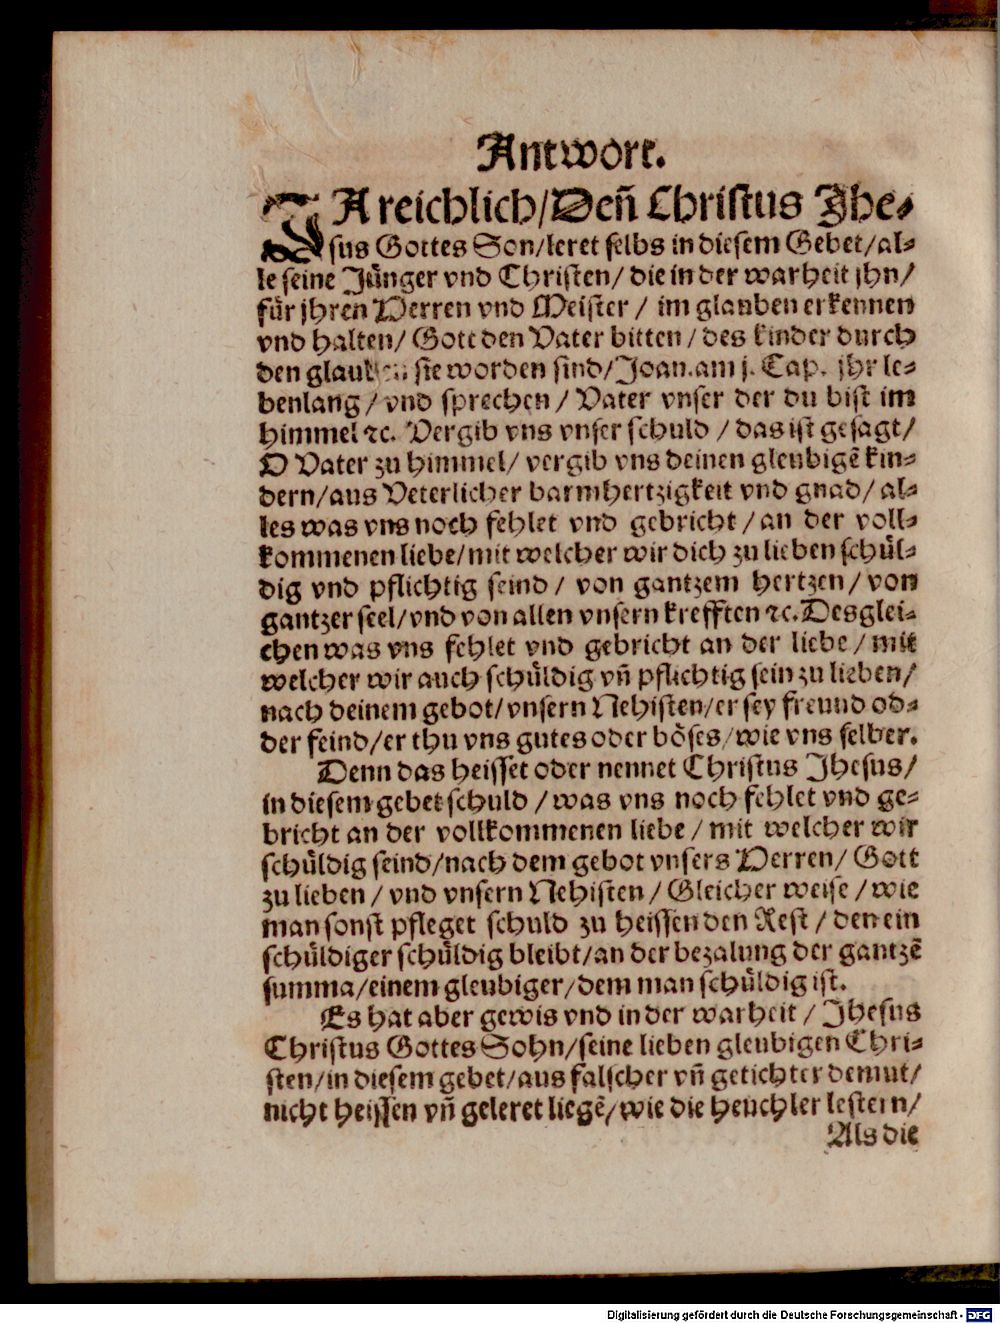 Antwort.
JA reichlich/Deñ Christus Jhe⸗
sus Gottes Son/leret selbs in diesem Gebet/al⸗
le seine Jünger vnd Christen/ die in der warheit jhn/
für jhren Herren vnd Meister / im glauben erkennen
vnd halten/ Gott den Vater bitten / des kinder durch
den glauben sie worden sind/Joan. am j. Cap. jhr le⸗
benlang / vnd sprechen / Vater vnser der du bist im
himmel ꝛc. Vergib vns vnser schuld / das ist gesagt/
O Vater zu himmel/ vergib vns deinen gleubigẽ kin⸗
dern/aus Veterlicher barmhertzigkeit vnd gnad/ al⸗
les was vns noch fehlet vnd gebricht / an der voll⸗
kommenen liebe/mit welcher wir dich zu lieben schül⸗
dig vnd pflichtig seind / von gantzem hertzen/ von
gantzer seel/vnd von allen vnsern krefften ꝛc. Desglei⸗
chen was vns fehlet vnd gebricht an der liebe / mit
welcher wir auch schüldig vñ pflichtig sein zu lieben/
nach deinem gebot/vnsern Nehisten/er sey freund od⸗
der feind/er thu vns gutes oder böses/wie vns selber.
Denn das heisset oder nennet Christus Jhesus/
in diesem gebet schuld / was vns noch fehlet vnd ge⸗
bricht an der vollkommenen liebe / mit welcher wir
schüldig seind/nach dem gebot vnsers Herren/ Gott
zu lieben / vnd vnsern Nehisten / Gleicher weise / wie
man sonst pfleget schuld zu heissen den Rest / den ein
schüldiger schüldig bleibt/an der bezalung der gantzẽ
summa/einem gleubiger/dem man schüldig ist.
Es hat aber gewis vnd in der warheit / Jhesus
Christus Gottes Sohn/seine lieben gleubigen Chri⸗
sten/in diesem gebet/aus falscher vñ getichter demut/
nicht heissen vñ geleret liegẽ/wie die heuchler lestern/
Als die
Digitalisierung gefördert durch die Deutsche Forschungsgemeinschaft - DFG